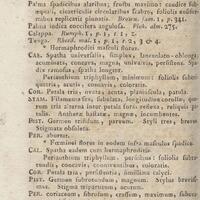 Palma spadicibus alatibus; frondis maximo: caudice sub-
equali, cicatricibus circularibus scabro, foliolis ensifor-
mibus replicatis pinnatis. Brown. jam. 1, p. 341.
Palma indica coccifera angulosa. Pluk. alm. 275.
Calappa. Rumph. 1, p. 1, t. 1, 2.
Tenga. Rheed. mal. 1, p. 1, t. 2, 3 & 4.
* Hermaphroditici masculi flores.
CAL. Spatha universalis, simplex, lanceolato-oblonga,
acuminata, concava, magna, univalvis, persistens. Spa-
dix ramosus, spatha longior.
Perianthium triphyllum, minimum: foliolis subtri-
quetris, acutis, concavis, coloratis.
COR. Petala tria, ovata, acuta, planiuscula, patula.
STAM. Filamenta sex, subulata, longitudine corollæ, quo-
rum tria altera inter petala forma lineari, reliquis pau-
lo minora. Antheræ hastatæ, magnæ, incumbentes.
PIST. Germen trifidum, parvum. Styli tres, breves.
Stigmata obsoleta.
PER. abortat.
* Feminini flores in eodem infra masculos spadice.
CAL. Spatha eadem cum hermaphroditis.
Perianthium triphyllum, persistens: foliolis subro-
tundis, concavis, conniventibus, coloratis.
COR. Petala tria, persistentia, simillima calyci.
PIST. Germen subrotundum, magnum. Stylus brevissi-
mus. Stigma tripartitum, acutum.
PER. coriaceum, fibrosum, crassum, maximum, subro-